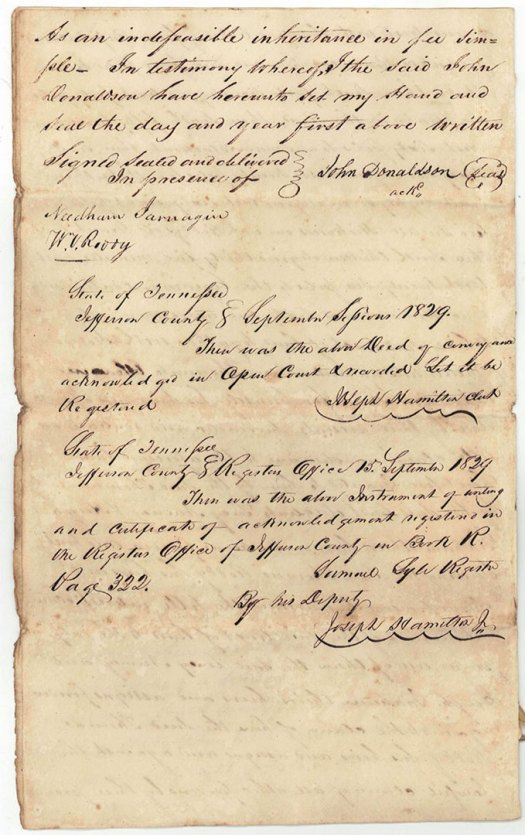 As an indefeasible inheritance in fee sim=
ple - In testimony whereof I the said John
Donaldson have hereunto set my Hand and
seal the day and year first above written
Signed sealed and delivered
In presence of
John Donaldson (Seal)
ackd
Needham Jarnagin
Wm.
State of Tennessee
Jefferson County } September Sessions 1829.
Then was the above Deed of conveyance
acknowledged in Open Court & recorded Let it be
Registered
Joseph Hamilton Clerk
State of Tennessee
Jefferson County } Registers Office 15 September 1829
Then was the above Instrument of writing
and certificate of acknowledgement registered in
the Registers Office of Jefferson County in Book R.
Page 322.
Samuel Lyle Register
By his Deputy
Joseph Hamilton Jr